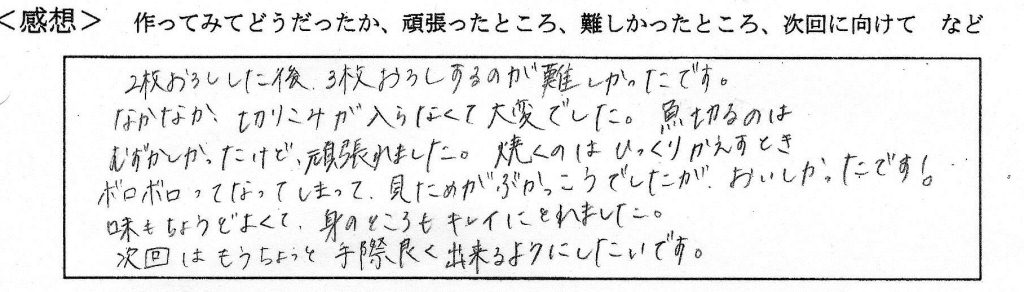 <感想>　作ってみてどうだったか、頑張ったところ、難しかったところ、次回に向けて　など
2枚おろしした後、3枚おろしするのが難しかったです。
なかなか、切りこみが入らなくて大変でした。魚切るのは
むずかしかったけど、頑張れました。焼くのはひっくりかえすとき
ボロボロってなってしまって、見ためがぶかっこうでしたが、おいしかったです!
味もちょうどよくて、身のところもキレイにとれました。
次回はもうちょっと手際良く出来るようにしたいです。